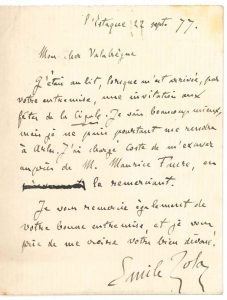 l'Estaque 22 sept. 77.
Mon cher Valabrègue
J'étais au lit, lorsque m'est arrivée, par
votre entremise, une invitation aux
fêtes de la Cigale. Je vais beaucoup mieux,
mais je ne puis pourtant me rendre
à Arles. J'ai chargé Coste de m'excuser
auprès de M. Maurice Faure, en
la remerciant.
Je vous remercie également de
votre bonne entremise, et je vous
prie de me croire votre bien dévoué.
Emile Zola